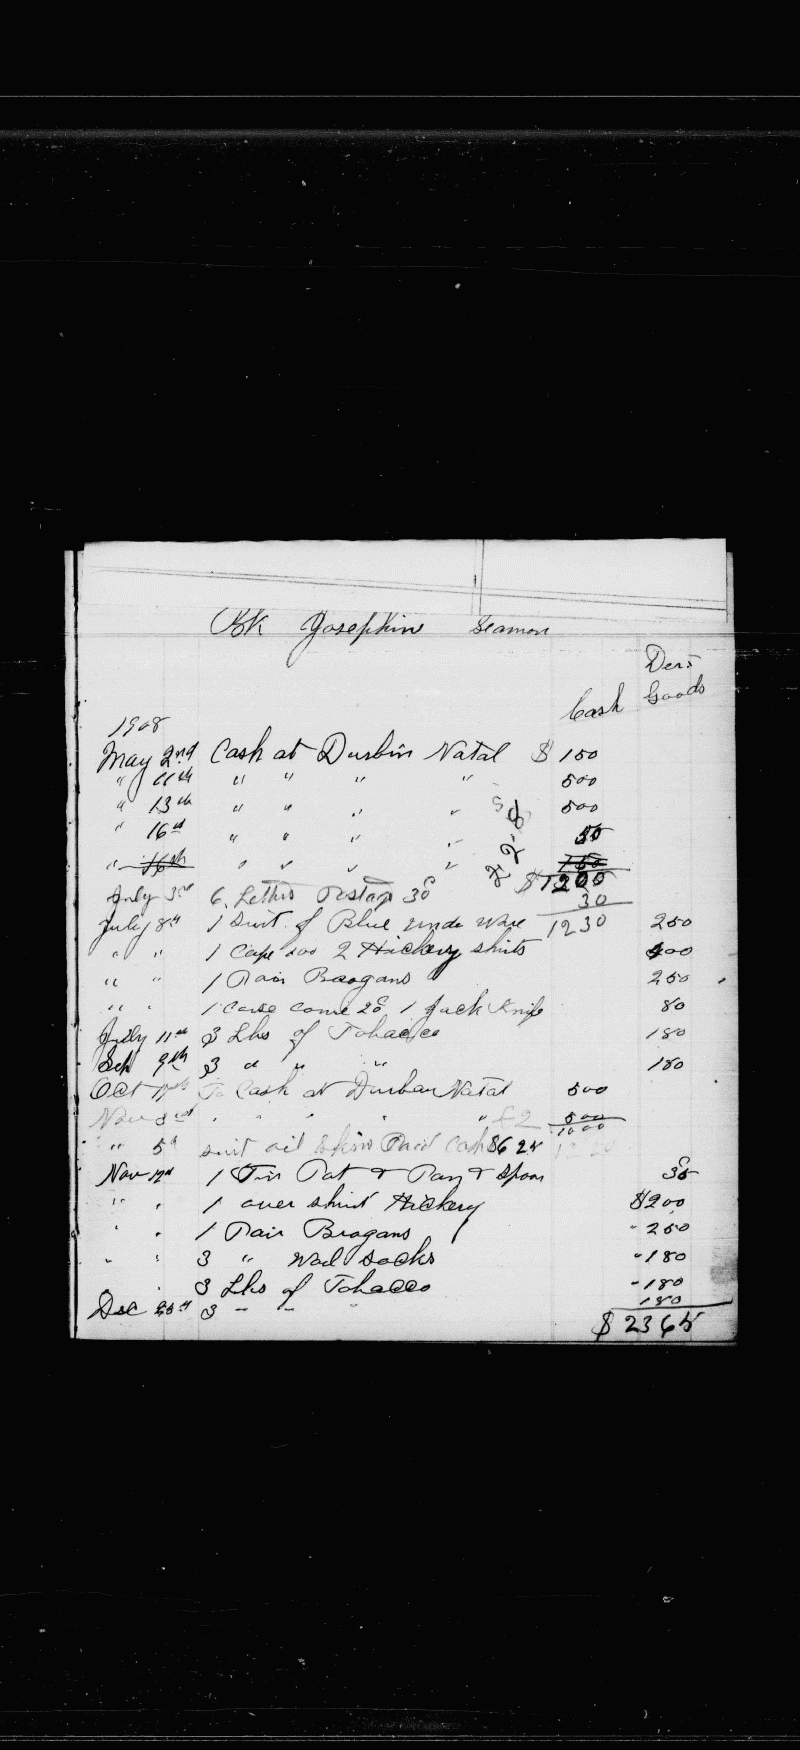 Bk Josephine Seamon
Des
Cash Goods
1908
May 2nd Cash at Durbin Natal $ 150
" 11th " " " " 500
" 13th " " " " 500
" 16th " " " " 50
" 16th " " " " 150
$1200
July 3rd 6 Letters Postag 30c 30
July 8th 1 Suit of Blue Unde Ware 1230 250
" " 1 Cape 200 2 Hickery shirts 400
" " 1 Pair Brogans 250
" " 1 Jack Knife 80
July 11th 3 Lbs of Tobacco 180
9th 3 " " " 180
Oct To Cash at Durban Natal 500
Nov 3rd " " " " £2 500
1000
" 5th suit oil Skins Paid Cash $6 25
Nov 12th 1 Tin Pot & Pan & Spoon 35
" " 1 over shirt Hickery $200
" " 1 Pair Brogans " 250
" " 3 " Wool Socks " 180
3 Lbs of Tobacco " 180
Dec 25th 3 " " " 180
$ 2365